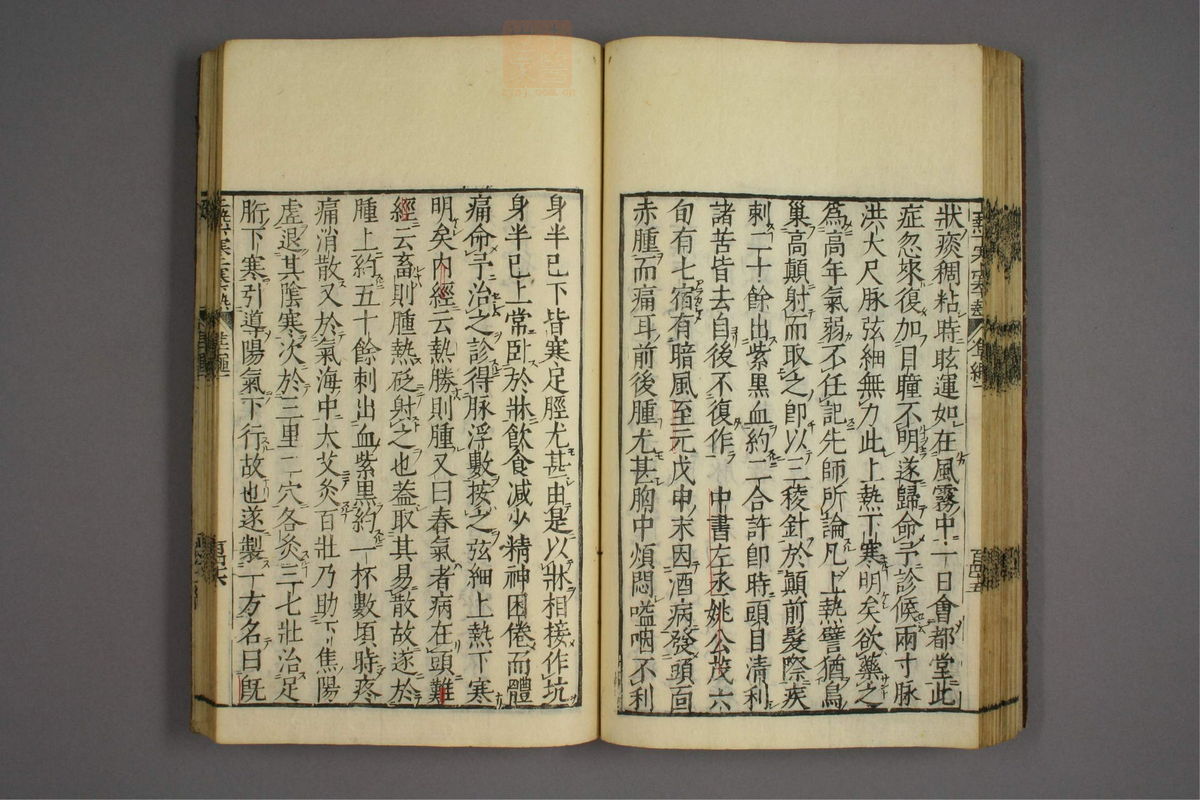 狀痰稠粘時眩運如在風霧中一日會都堂此
症忽來復加目瞳不明遂歸命予診候兩寸脉
洪大尺脉弦細無力此上熱下寒明矣欲藥之
爲高年氣弱不任記先師所論凡上熱譬猶鳥
巢高顛射而取之即以三稜針於顛前髮際疾
刺二十餘出紫黑血約二合許即時頭目清利
諸苦皆去自後不復作　中書左丞姚公茂六
旬有七宿有暗風至元戊申末因酒病發頭面
赤腫而痛耳前後腫尤甚胸中煩悶嗌咽不利
身半已下皆寒足脛尤甚由是以牀相接作坑
身半已上常卧於牀飲食減少精神困倦而體
痛命予治之診得脉浮數按之弦細上熱下寒
明矣内經云熱勝則腫又曰春氣者病在頭難
經云畜則腫熱砭射之也蓋取其易散故遂於
腫上約五十餘刺出血紫黑約一杯數頃時疼
痛消散又於氣海中大艾灸百壯乃助下焦陽
虚退其陰寒次於三里二穴各灸三七壯治足
胻下寒引導陽氣下行故也遂製一方名曰旣